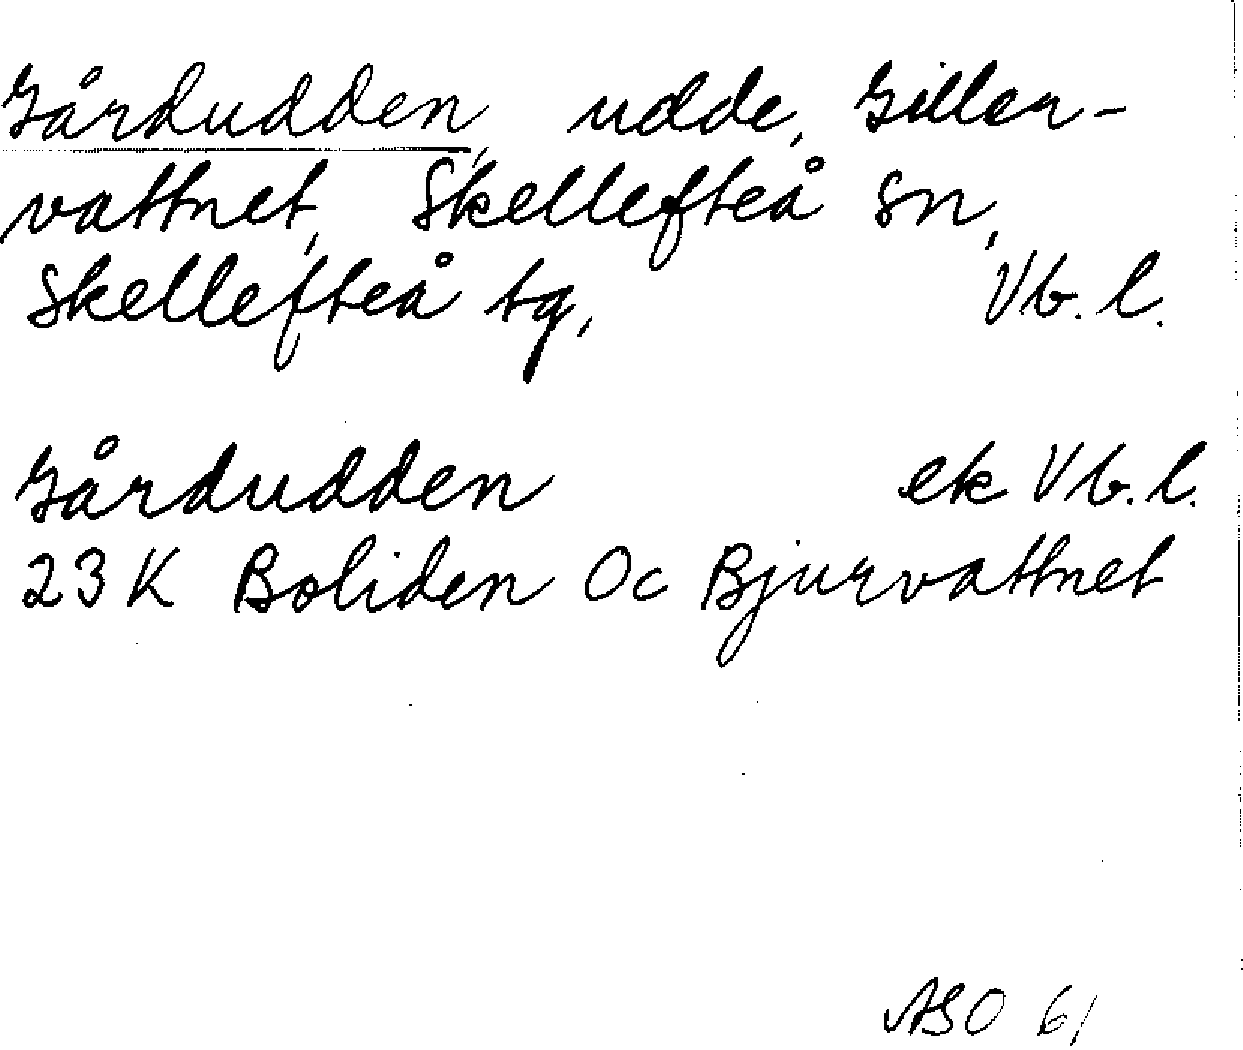 Gårdudden, udde, Giller-
vattnet, Skellefteå sn,
Skellefteå tg, Vb. l.
Gårdudden ek Vb. l.
23 K Boliden Oc Bjurvattnet
ASO 61